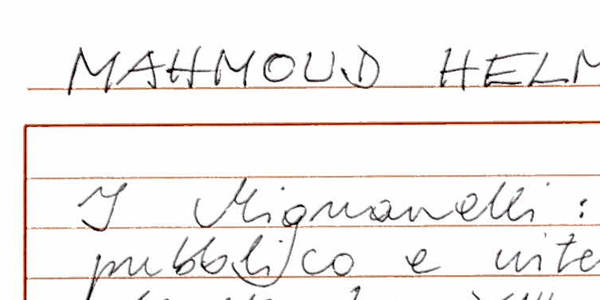 MAHMOUD HELM
I Mignanelli :
pubblico e